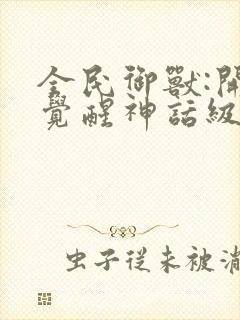 全民御獸:開
覺醒神話級
虫子從未被滿